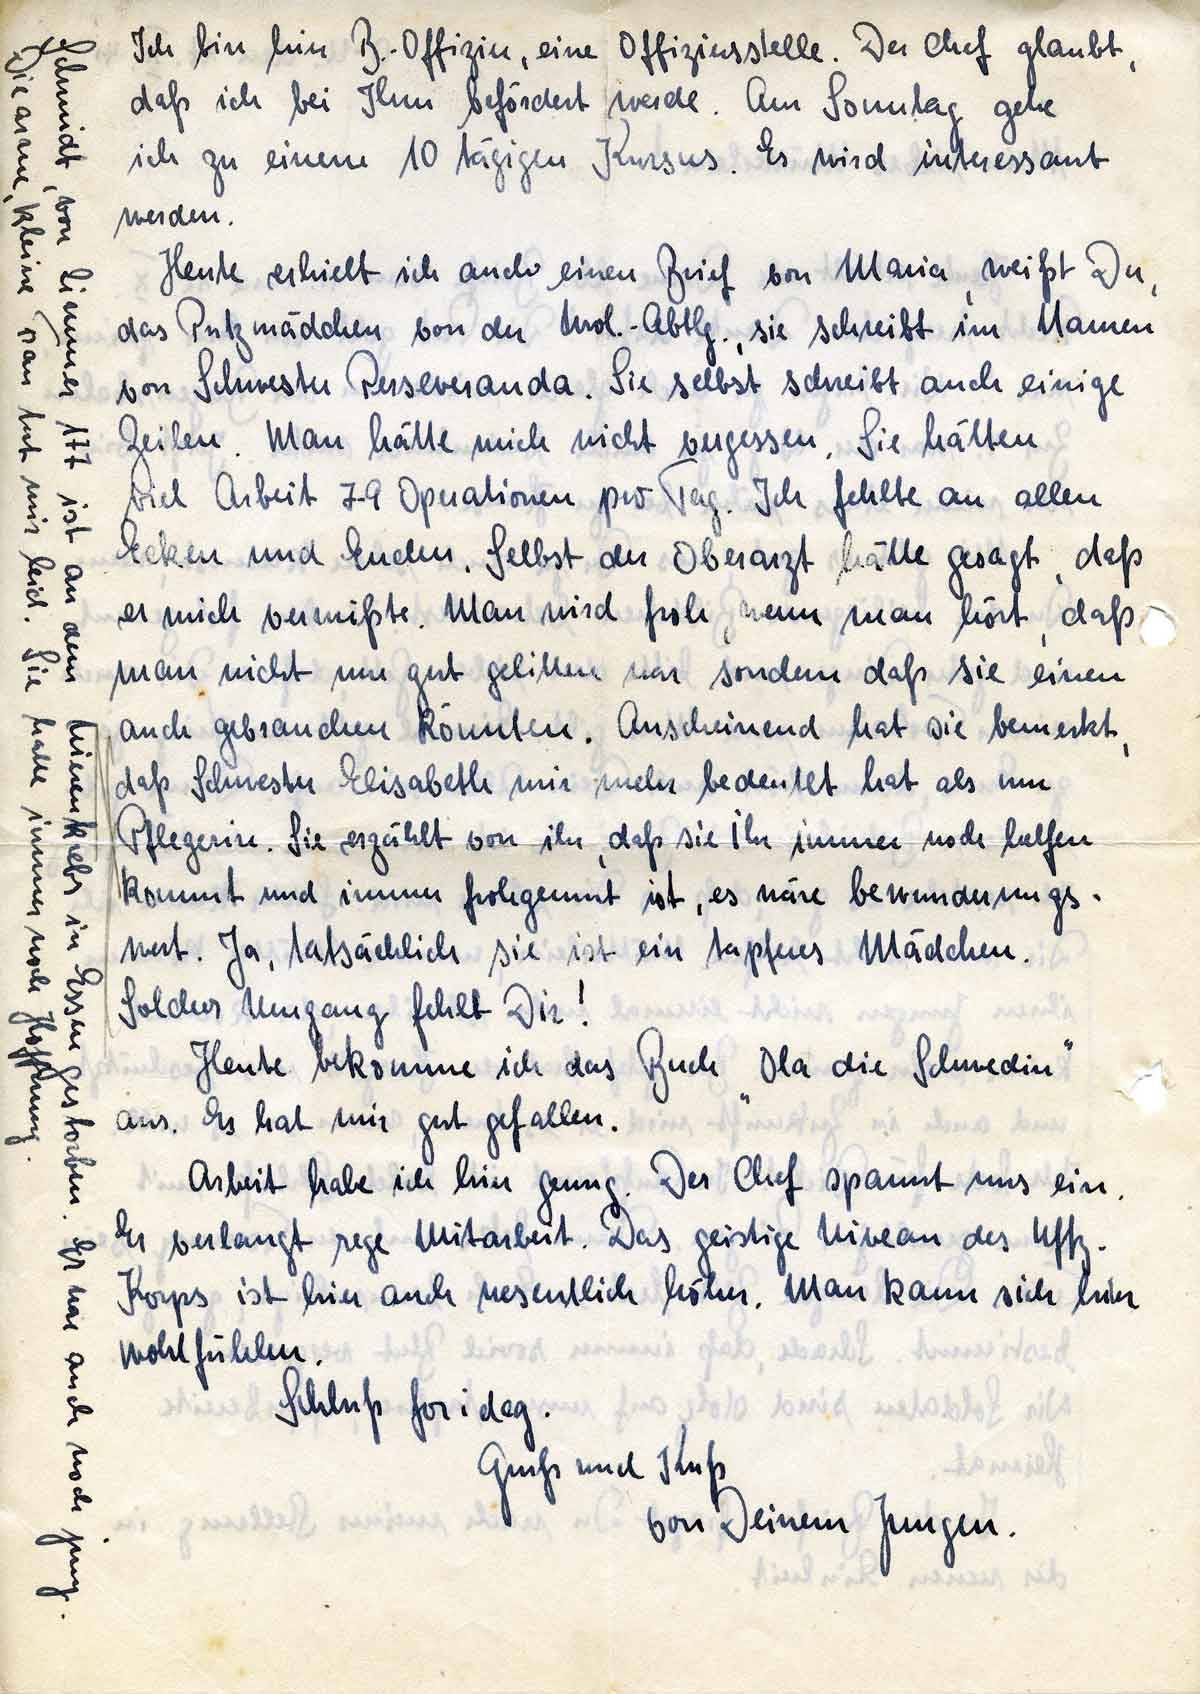 Ich bin hier B.-Offizier, eine Offiziersstelle. Der Chef glaubt,
daß ich bei Ihm befördert werde. Am Sonntag gehe
ich zu einem 10 tägigen Kursus. Es wird interessant
werden.
Heute erhielt ich auch einen Brief von Maria, weißt Du,
das Putzmädchen von der Urol.-Abtlg., sie schreibt im Namen
von Schwester Perseveranda. Sie selbst schreibt auch einige
Zeilen. Man hätte mich nicht vergessen. Sie hätten
viel Arbeit 7-9 Operationen pro Tag. Ich fehlte an allen
Ecken und Enden. Selbst der Oberarzt hätte gesagt, daß
er mich vermißte. Man wird froh, wenn man hört, daß
man nicht nur gut gelitten war sondern daß sie einen
auch gebrauchen könnten. Anscheinend hat sie bemerkt,
daß Schwester Elisabeth mir mehr bedeutet hat als nur
Pflegerin. Sie erzählt von ihr, daß sie Ihr immer noch helfen
kommt und immer frohgemut ist, es wäre bewunderungs-
wert. Ja, tatsächlich sie ist ein tapferes Mädchen.
Solcher Umgang fehlt Dir!
Heute bekomme ich das Buch „Ola die Schwedin"
aus. Es hat mir gut gefallen.
Arbeit habe ich hier genug. Der Chef spannt uns ein.
Er verlangt rege Mitarbeit. Das geistige Niveau des Uffz.-
Korps ist hier auch wesentlich höher. Man kann sich hier
wohlfühlen.
Schluß for idag.
Gruß und Kuß
von Deinem Jungen.
Schmidt, von Zimmer 177 ist an dem Nierenkrebs in Essen gestorben. Er war auch noch jung.
Die arme, kleine Frau tut mir leid. Sie hatte immer noch Hoffnung.